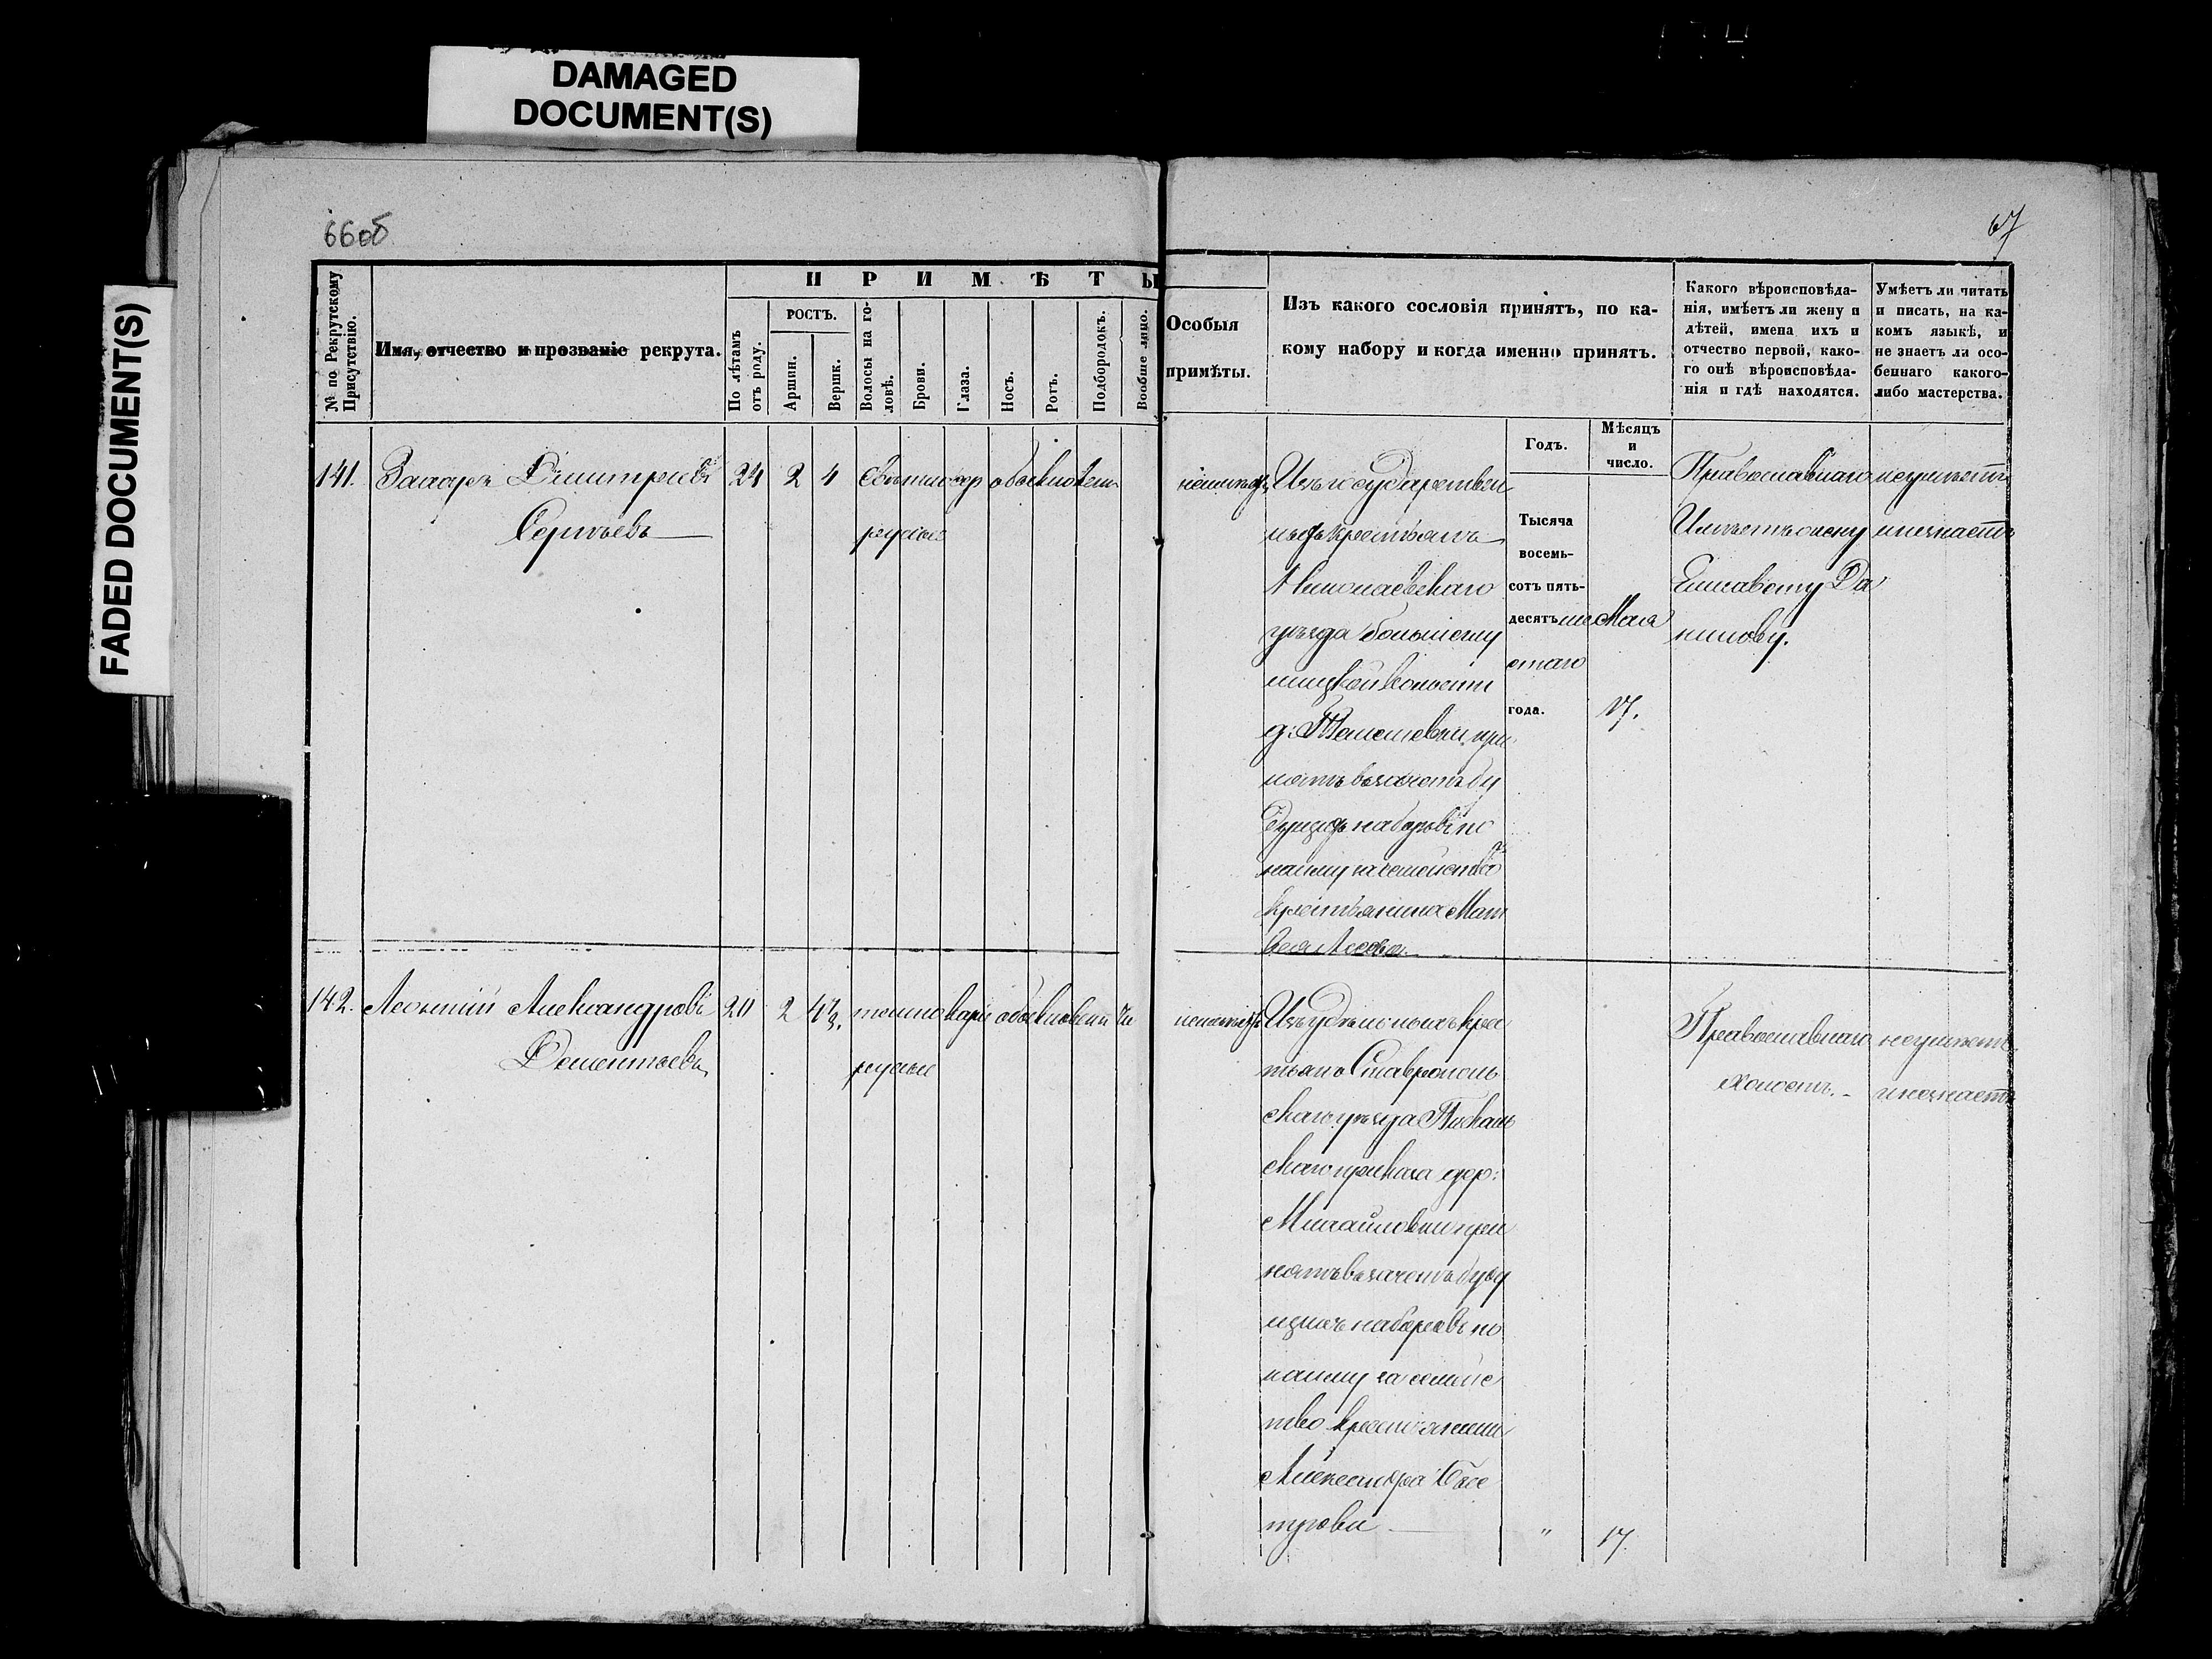 DAMAGED
DOCUMENT(S)
FADED DOCUMENT(S)
66об
67
№ по Рекрутскому Присутствію.
Имя, отчество и прозваніе рекрута.
ПРИМѢТЫ
По лѣтамъ отъ роду.
РОСТЪ.
Аршин.
Вершк.
Волосы на го-
ловѣ.
Брови.
Глаза.
Носъ.
Ротъ.
Подбородокъ.
Вообще лицо.
Особыя
примѣты.
Изъ какого сословія принятъ, по ка-
кому набору и когда именно принятъ.
Годъ.
Мѣсяцъ
и
число.
Какого вѣроисповѣда-
нія, имѣетъ ли жену и
дѣтей, имена ихъ и
отчество первой, како-
го онѣ вѣроисповѣда-
нія и гдѣ находятся.
Умѣетъ ли читать
и писать, на ка-
комъ языкѣ, и
не знаетъ ли осо-
беннаго какого-
либо мастерства.
141.
Захаръ Дмитріевъ
Сергѣевъ
24
2
4
свѣтло
русые
обыкновен
Изъ государствен
ныхъ крестьянъ
Николаевскаго
уѣзда
волости
при
нятъ въ зачетъ бу
дущихъ наборовъ по
найму за семейство
крестьянина Мат
вея
Тысяча
восемь-
сотъ пять-
десятъ ше
стаго
года.
Мая
17.
Православнаго
Имѣетъ жену
Елисавету Да
нилову.
неумѣетъ
инезнаетъ
142.
Леонтій Александровъ
Дементьевъ
20
2
4½.
темно
русые
каріе
обыкновен
чи
Изъ удѣльныхъ крес
тьянъ Ставрополь
скаго уѣзда
скаго приказа дер:
Михайловки при
нятъ въ зачетъ буду
щихъ наборовъ по
найму за семейс
тво крестьянина
Александра
"
17.
Православнаго
холостъ.
неумѣетъ
инезнаетъ